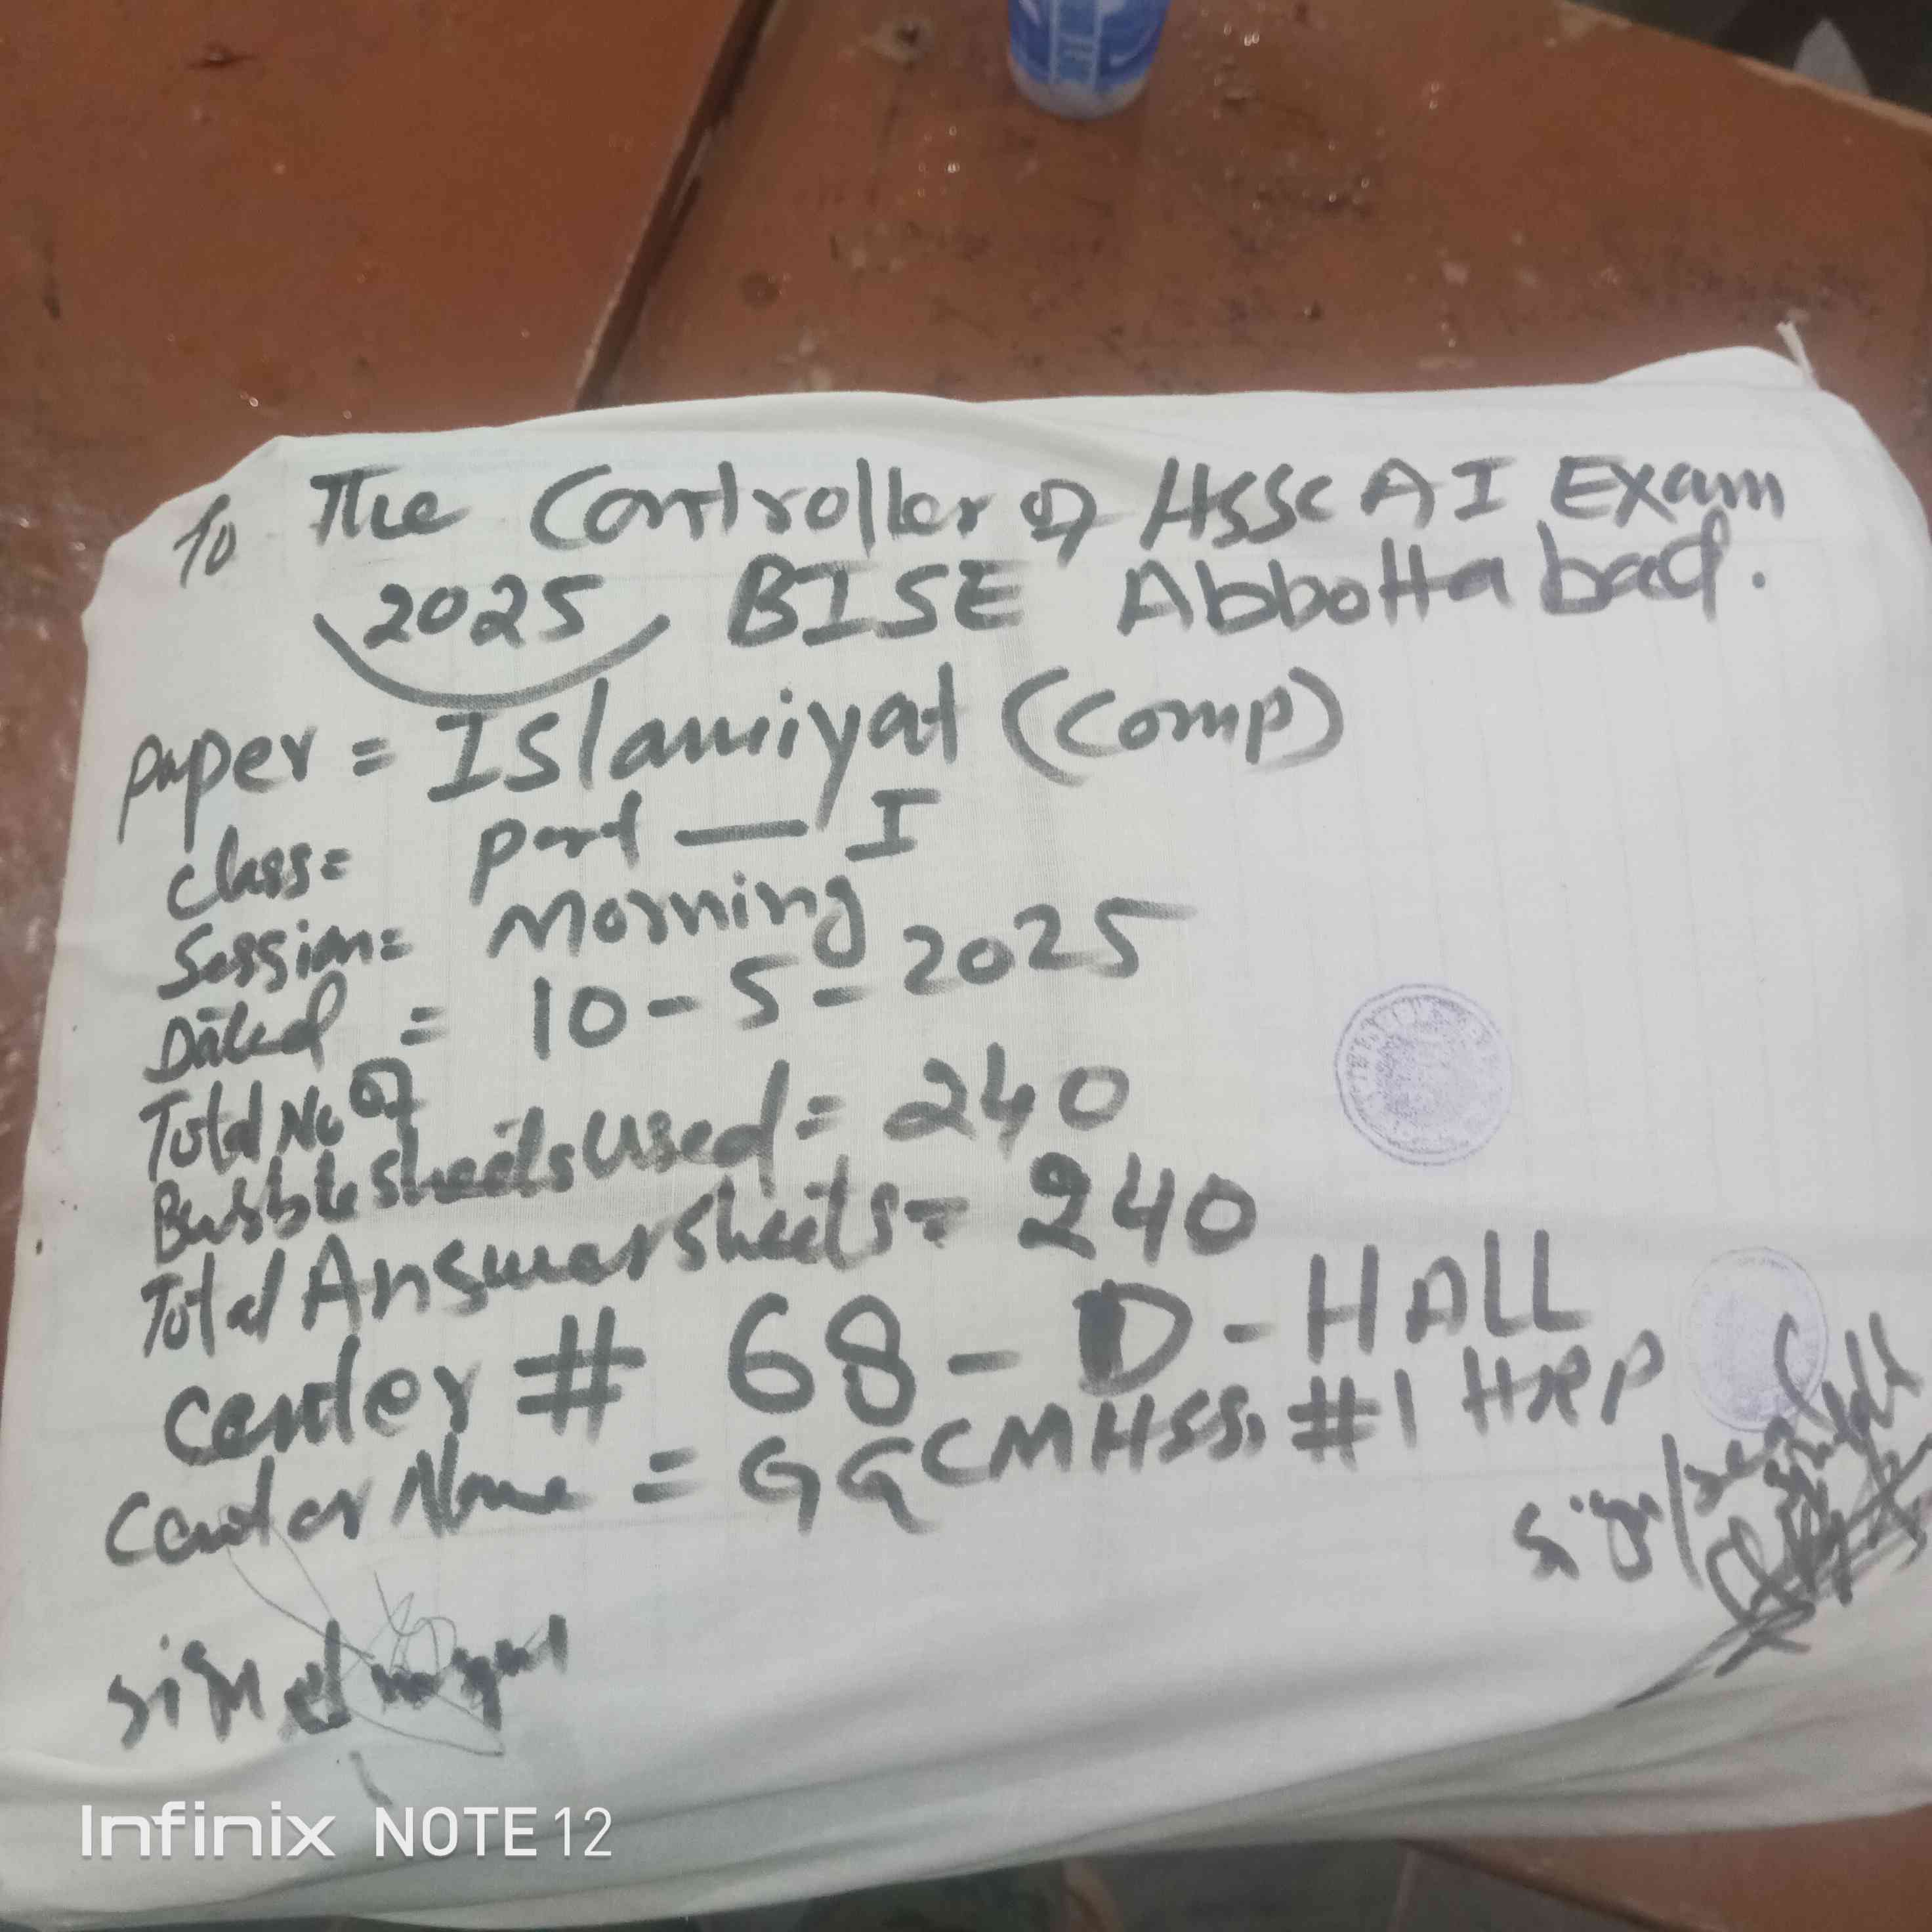 To The Controller of HSSC A I Exam
2025 BISE Abbottabad.
Paper = Islamiyat (Comp)
Class = Part — I
Session = Morning
Dated = 10-5-2025
Total No of
Bubble Sheets Used = 240
Total Answer Sheets = 240
Center # 68 - D - HALL
Center Name = GGCMHSS, #1 HRP
Sign/
Sign of
Infinix NOTE 12